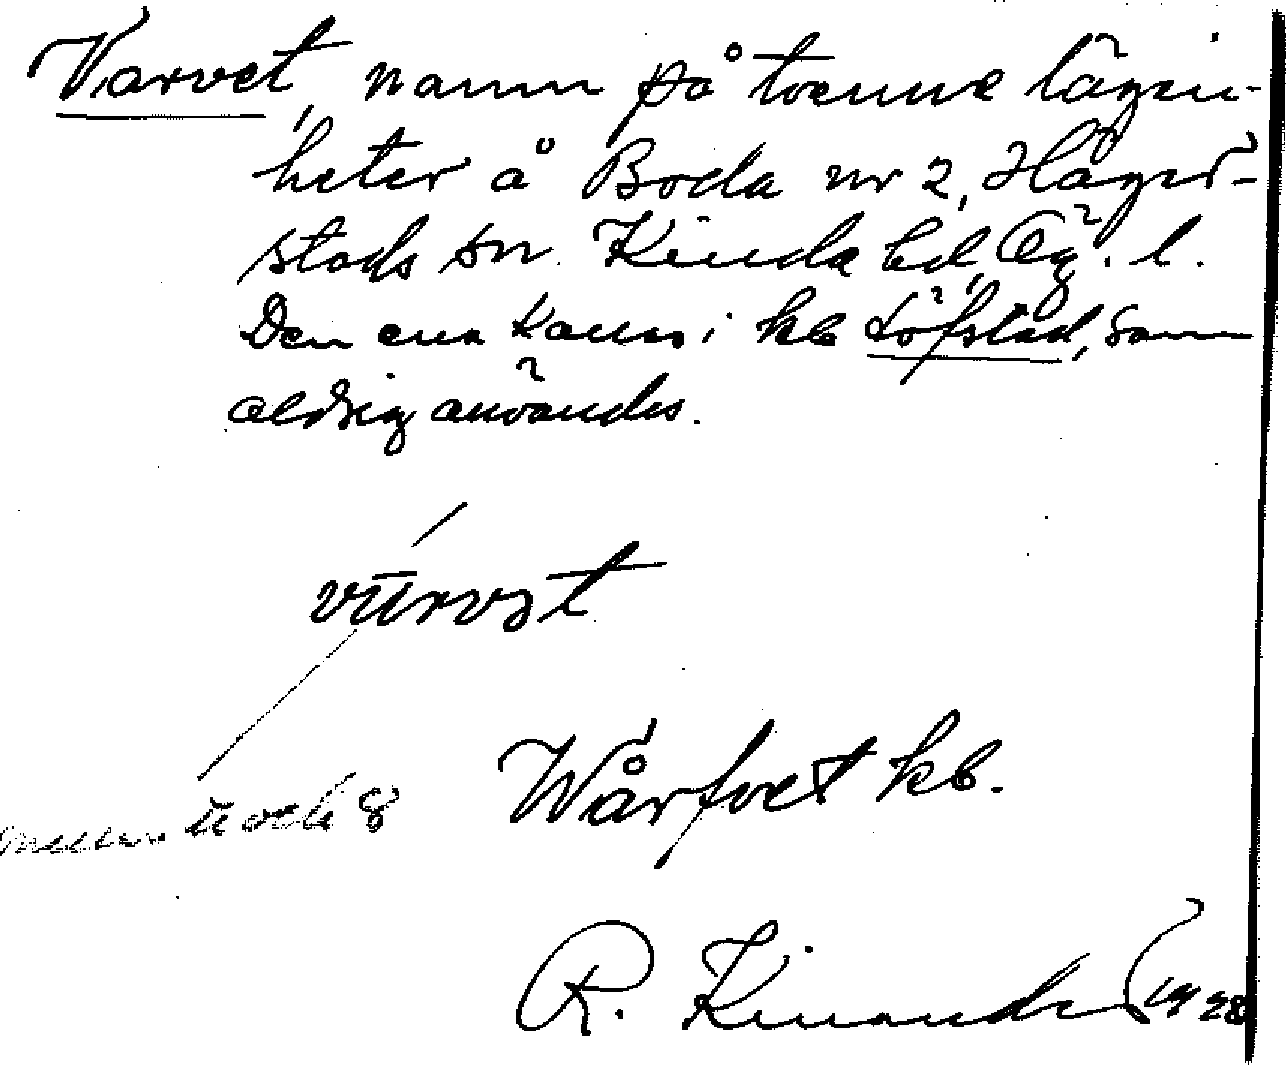 Varvet, namn på tvenne lägen-
heter å Boda nr 2, Häger-
stads sn Kinda hd, Ög. l.
Den ena kallas i kb Löfstad, som
aldrig användes.
vūrvət
Wårfvet kb.
ū och 8
R. Kinander 1928